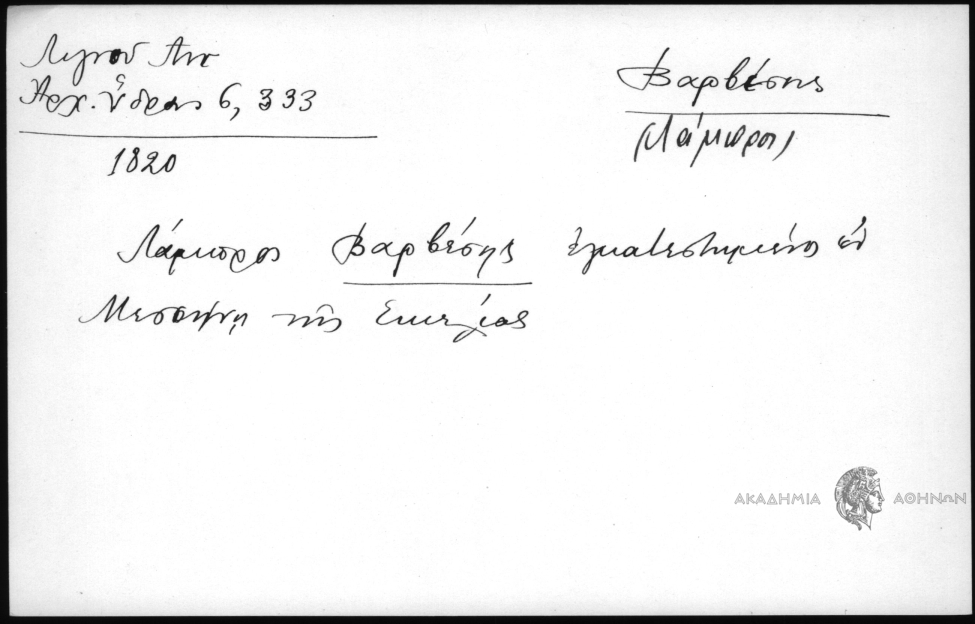 Λιγνού Αντ
Αρχ. Ὕδρας 6, 333
1820
Βαρβέσης
(Λάμπρος)
Λάμπρος Βαρβέσης ἐγκατεστημένος ἐν
Μεσσήνῃ τῆς Σικελίας
ΑΚΑΔΗΜΙΑ ΑΘΗΝΩΝ